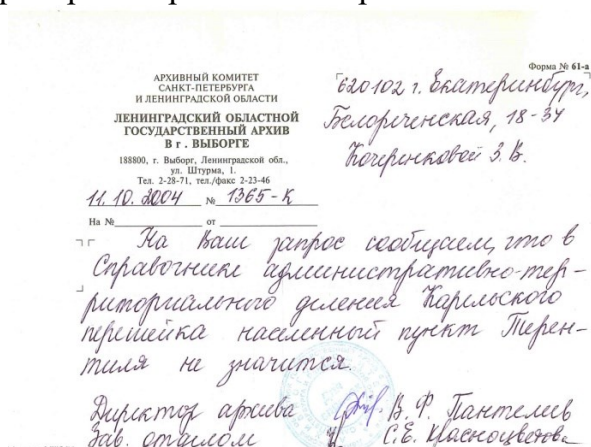 Форма № 61-а
АРХИВНЫЙ КОМИТЕТ
САНКТ-ПЕТЕРБУРГА
И ЛЕНИНГРАДСКОЙ ОБЛАСТИ
ЛЕНИНГРАДСКИЙ ОБЛАСТНОЙ
ГОСУДАРСТВЕННЫЙ АРХИВ
В г. ВЫБОРГЕ
188800, г. Выборг, Ленинградской обл.,
ул. Штурма, 1.
Тел. 2-28-71, тел./факс 2-23-46
11.10.2004 № 1365-К
На № от
620102 г. Екатеринбург,
Белореченская, 18-34
Кочеренковой З.В.
На Ваш запрос сообщаем, что в
Справочнике административно-тер-
риториального деления Карельского
перешейка населенный пункт Терен-
тиля не значится.
Директор архива В.Ф. Пантелеев
Зав. отделом С.Е. Красноцветова